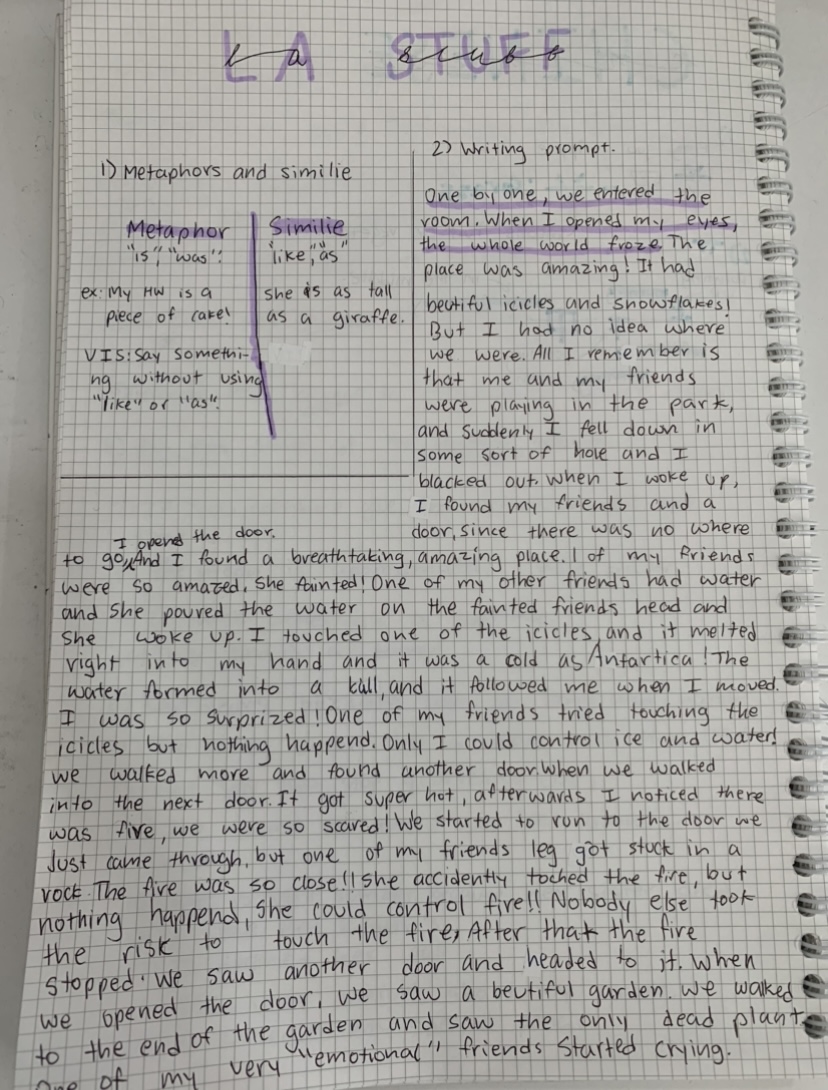 LA STUFF
La Stuff
1) Metaphors and similie
Metaphor
"is", "was".
ex: My HW is a
piece of cake!
VIS: Say somethi-
ng without using
"like" or "as".
Similie
"like", "as"
she is as tall
as a giraffe.
2) Writing prompt.
One by one, we entered the
room. When I opened my eyes,
the whole world froze. The
place was amazing! It had
beutiful icicles and snowflakes!
But I had no idea where
we were. All I remember is
that me and my friends
were playing in the park,
and suddenly I fell down in
some sort of hole and I
blacked out. when I woke up,
I found my friends and a
door, since there was no where
I opend the door.
to go, And I found a breathtaking, amazing place. 1 of my friends
were so amazed, she fainted! One of my other friends had water
and she poured the water on the fainted friends head and
she woke up. I touched one of the icicles, and it melted
right into my hand and it was a cold as Antartica! The
water formed into a ball, and it followed me when I moved.
I was so surprized! One of my friends tried touching the
icicles but nothing happend. Only I could control ice and water!
we walked more and found another door. when we walked
into the next door. It got super hot, afterwards I noticed there
was fire, we were so scared! We started to run to the door we
Just came through, but one of my friends leg got stuck in a
rock. The fire was so close!! She accidently toched the fire, but
nothing happend, she could control fire!! Nobody else took
the risk to touch the fire, After that the fire
stopped. We saw another door and headed to it. When
we opened the door, we saw a beutiful garden. we walked
to the end of the garden and saw the only dead plant
One of my very "emotional" friends started crying.